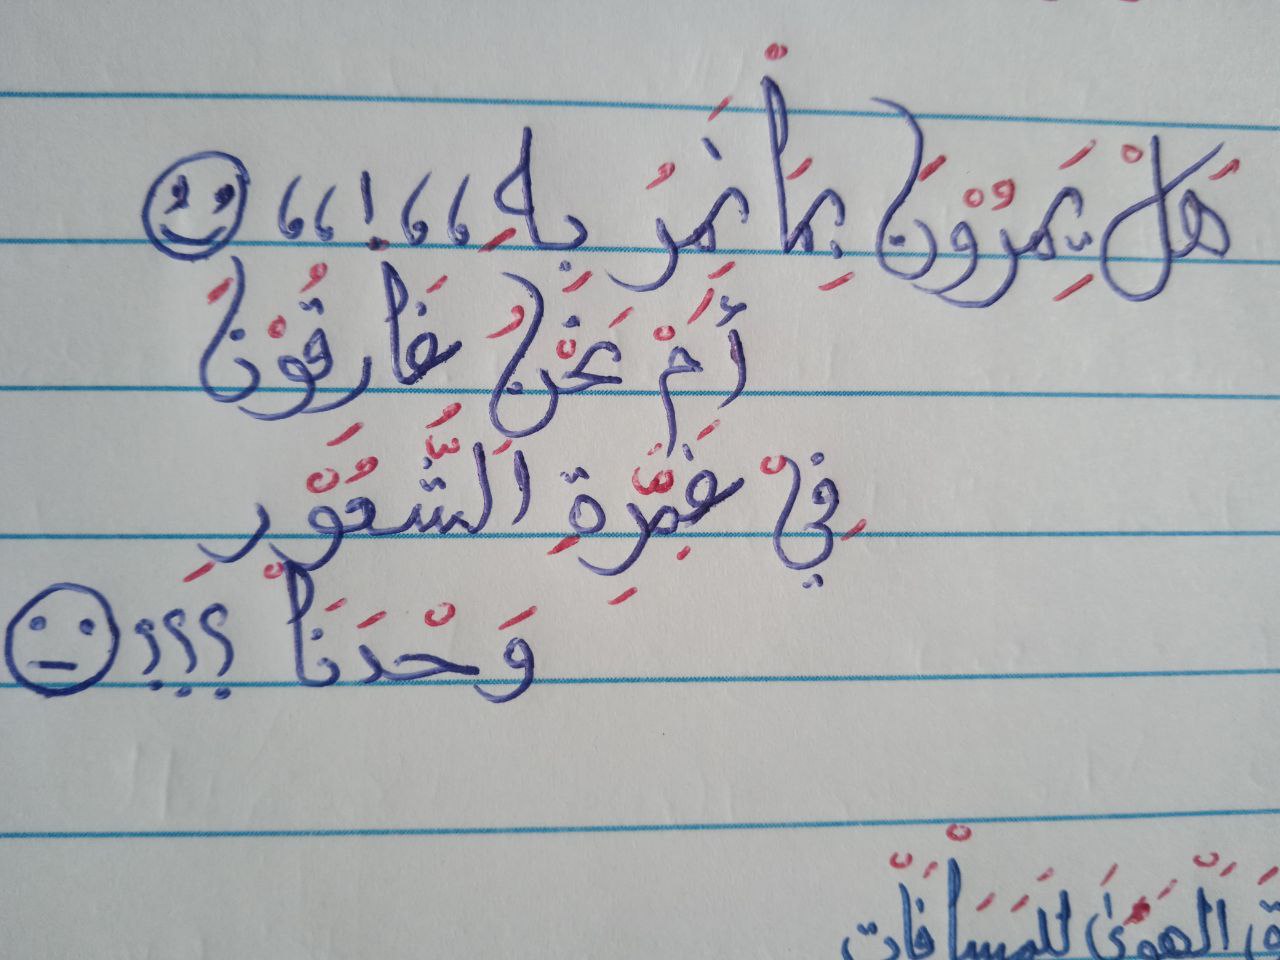 هَلْ يَمِرُوْنَ بِمَاْ نَمَرُ بِهِ ،،،،!،،،،
أَمْ نَحْنُ غَارِقُوْنَ
فِيْ غَمِّرَةِ اَلشَّعُوْرِ
وَحْدَنَاْ ؟؟؟
اَلْهَوَىٰ لِلْمَسَاْفَاْت